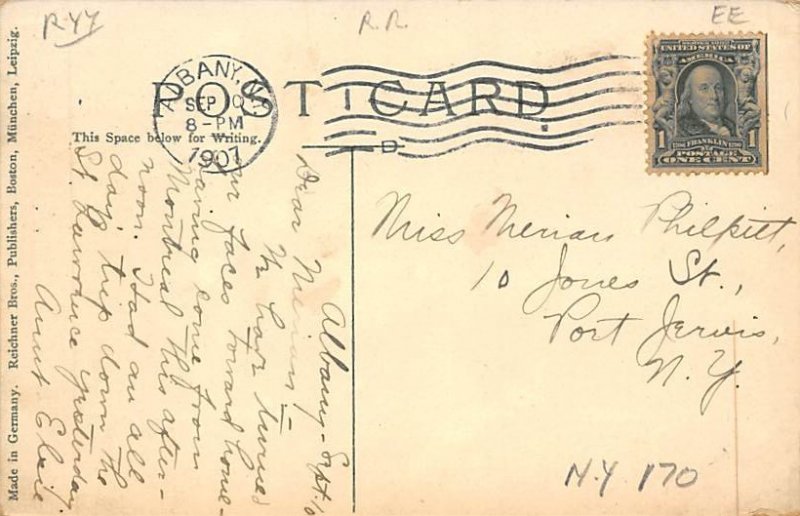 R44
R.R.
EE
POST CARD
ALBANY, N.Y.
SEP 10
8-PM
1907
D
UNITED STATES OF
AMERICA
1 FRANKLIN 1
POSTAGE
ONE CENT
This Space below for Writing.
Albany - Sept. 10
Dear Merian :-
We have turned
our faces toward home -
having come from
Montreal this after-
noon. Had an all
day trip down the
St. Lawrence yesterday.
Aunt Elsie
Miss Merian Philpitt,
10 Jones St.,
Port Jervis,
N.Y.
N.Y 170
Made in Germany. Reichner Bros., Publishers, Boston, München, Leipzig.